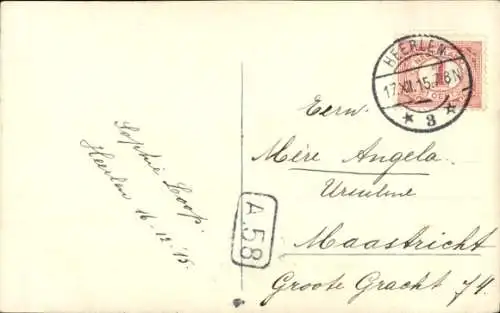 HEERLEN
17.XII.15.7-8N
* 3 *
Eerw.
Mère Angela
Ursuline
Maastricht
Groote Gracht 74.
A.58
Sophie Loop.
Heerlen 16-12-'15.